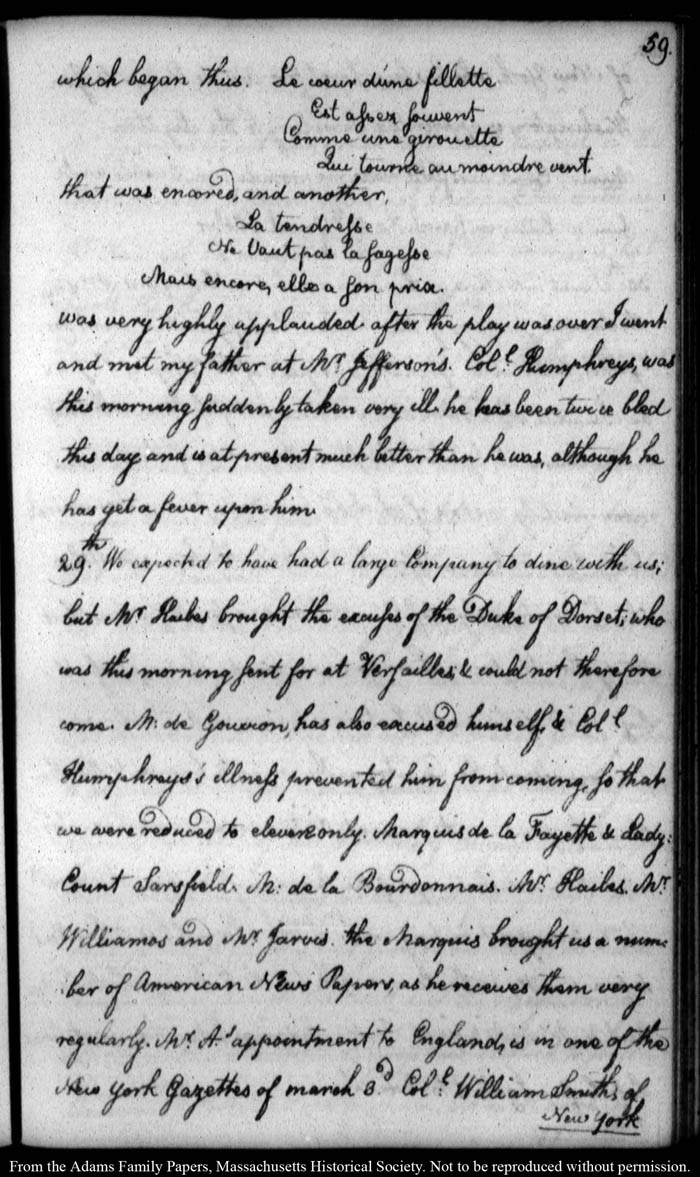 59.
which began thus. Le coeur d'une fillette
Est assez souvent
Comme une girouette
Qui tourne au moindre vent.
that was encored, and another,
La tendresse
Ne vaut pas la sagesse
Mais encore, elle a son prix.
was very highly applauded. after the play was over I went
and met my father at Mr. Jefferson's. Coll. Humphreys, was
this morning suddenly taken very ill. he has been twice bled
this day and is at present much better than he was, although he
has yet a fever upon him.
29th. We expected to have had a large Company to dine with us;
but Mr. Hailes brought the excuses of the Duke of Dorset; who
was this morning sent for at Versailles, & could not therefore
come. M: de Gouvion, has also excused himself, & Coll
Humphreys's illness prevented him from coming, so that
we were reduced to eleven only. Marquis de la Fayette & Lady:
Count Sarsfield. M: de la Bourdonnais. Mr. Hailes. Mr.
Williamos and Mr. Jarvis. the Marquis brought us a num:
ber of American News Papers, as he receives them very
regularly. Mr. A's appointment to England, is in one of the
New York Gazettes of march 3d. Coll. William Smith, of
New York
From the Adams Family Papers, Massachusetts Historical Society. Not to be reproduced without permission.